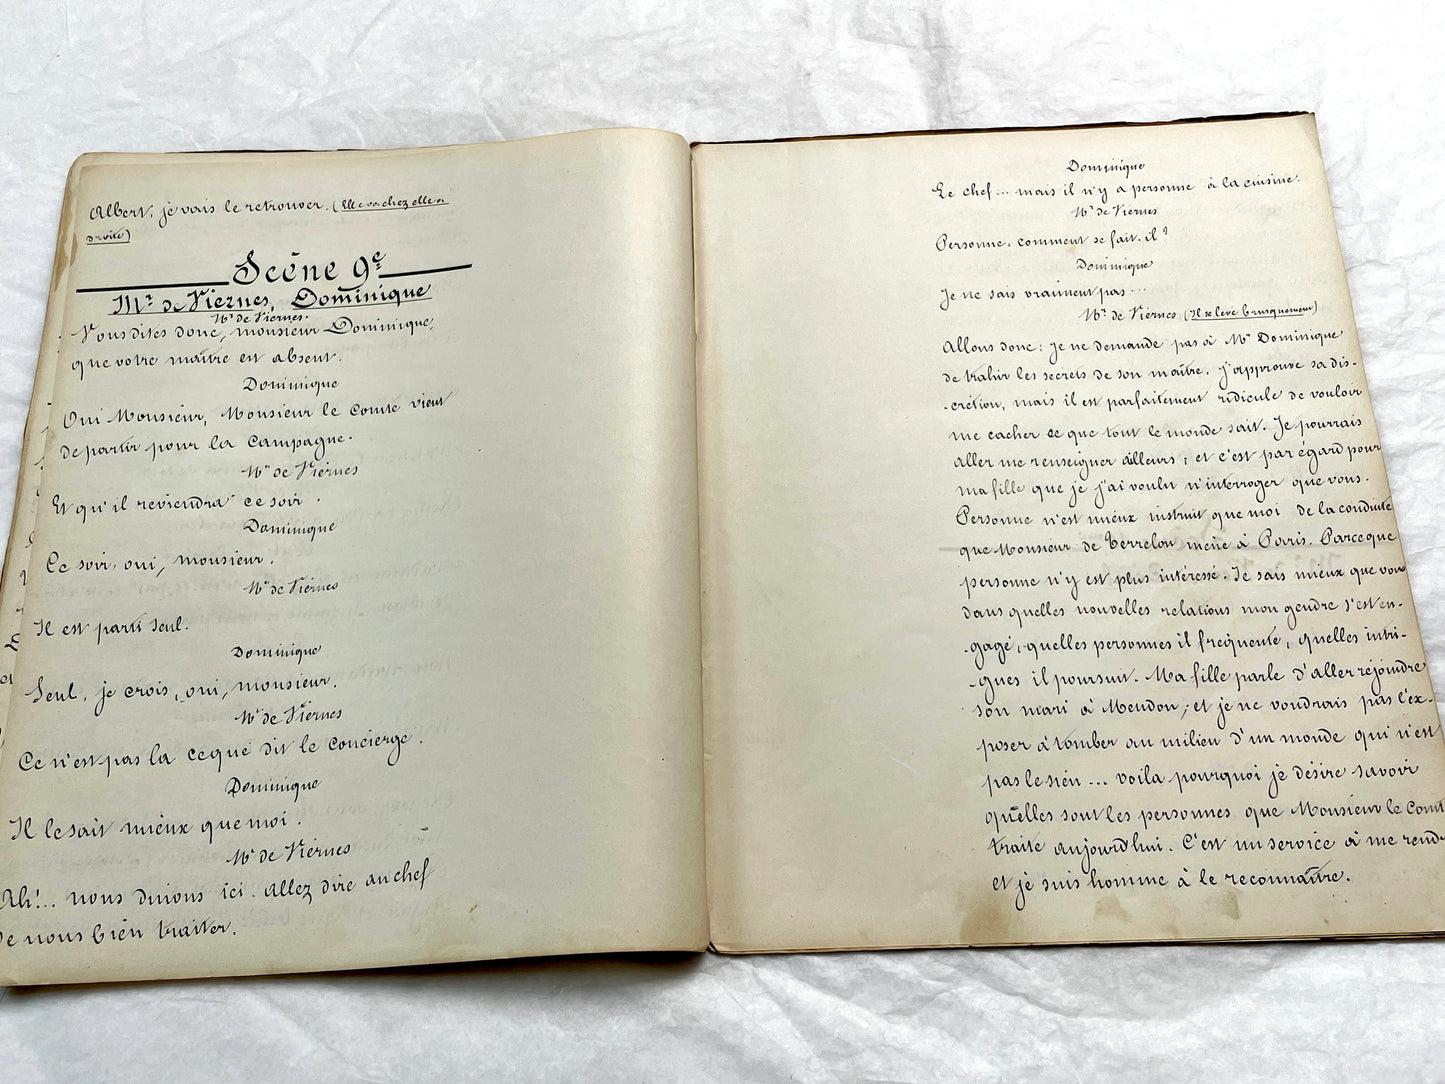 Albert, je vais le retrouver. (Elle va chez elle à
droite)
Scène 9e
Mr de Viernes, Dominique
Mr de Viernes.
Vous dites donc, monsieur Dominique,
que votre maître est absent.
Dominique
Oui Monsieur, Monsieur le Comte vient
de partir pour la campagne.
Mr de Viernes
Et qu'il reviendra ce soir.
Dominique
Ce soir, oui, monsieur.
Mr de Viernes
Il est parti seul.
Dominique
Seul, je crois, oui, monsieur.
Mr de Viernes
Ce n'est pas là ce que dit le concierge.
Dominique
Il le sait mieux que moi.
Mr de Viernes
Ah!.. nous dinons ici. Allez dire au chef
de nous bien traiter.
Dominique
Le chef... mais il n'y a personne à la cuisine.
Mr de Viernes
Personne, comment se fait-il?
Dominique
Je ne sais vraiment pas...
Mr de Viernes (Il se lève brusquement)
Allons donc; je ne demande pas à Mr Dominique
de trahir les secrets de son maître. J'approuve sa dis-
-crétion, mais il est parfaitement ridicule de vouloir
me cacher ce que tout le monde sait. Je pourrais
aller me renseigner ailleurs; et c'est par égard pour
ma fille que je j'ai voulu n'interroger que vous.
Personne n'est mieux instruit que moi de la conduite
que Monsieur de Terrelon mène à Paris. Parce que
personne n'y est plus intéressé. Je sais mieux que vous
dans quelles nouvelles relations mon gendre s'est en-
-gagé, quelles personnes il fréquente, quelles intri-
-gues il poursuit. Ma fille parle d'aller rejoindre
son mari à Meudon; et je ne voudrais pas l'ex-
poser à tomber au milieu d'un monde qui n'est
pas le sien... voila pourquoi je désire savoir
quelles sont les personnes que Monsieur le Comt
traite aujourd'hui. C'est un service à me rend
et je suis homme à le reconnaître.